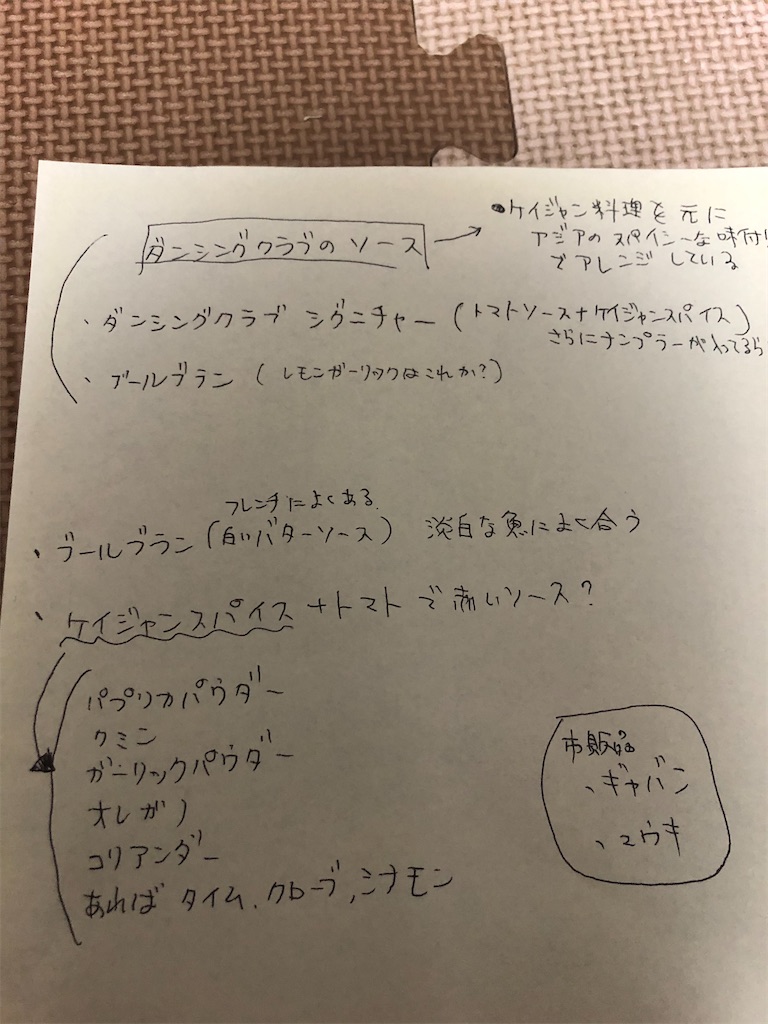 ダンシングクラブのソース
・ケイジャン料理を元に
アジアのスパイシーな味付け
でアレンジしている
・ダンシングクラブ シグニチャー (トマトソース+ケイジャンスパイス)
さらにナンプラーが入ってるら
・ブールブラン (レモンガーリックはこれか?)
フレンチによくある
・ブールブラン (白いバターソース) 淡白な魚によく合う
・ケイジャンスパイス+トマトで赤いソース?
パプリカパウダー
クミン
ガーリックパウダー
オレガノ
コリアンダー
あれば タイム、クローブ、シナモン
市販品
、ギャバン
、ユウキ